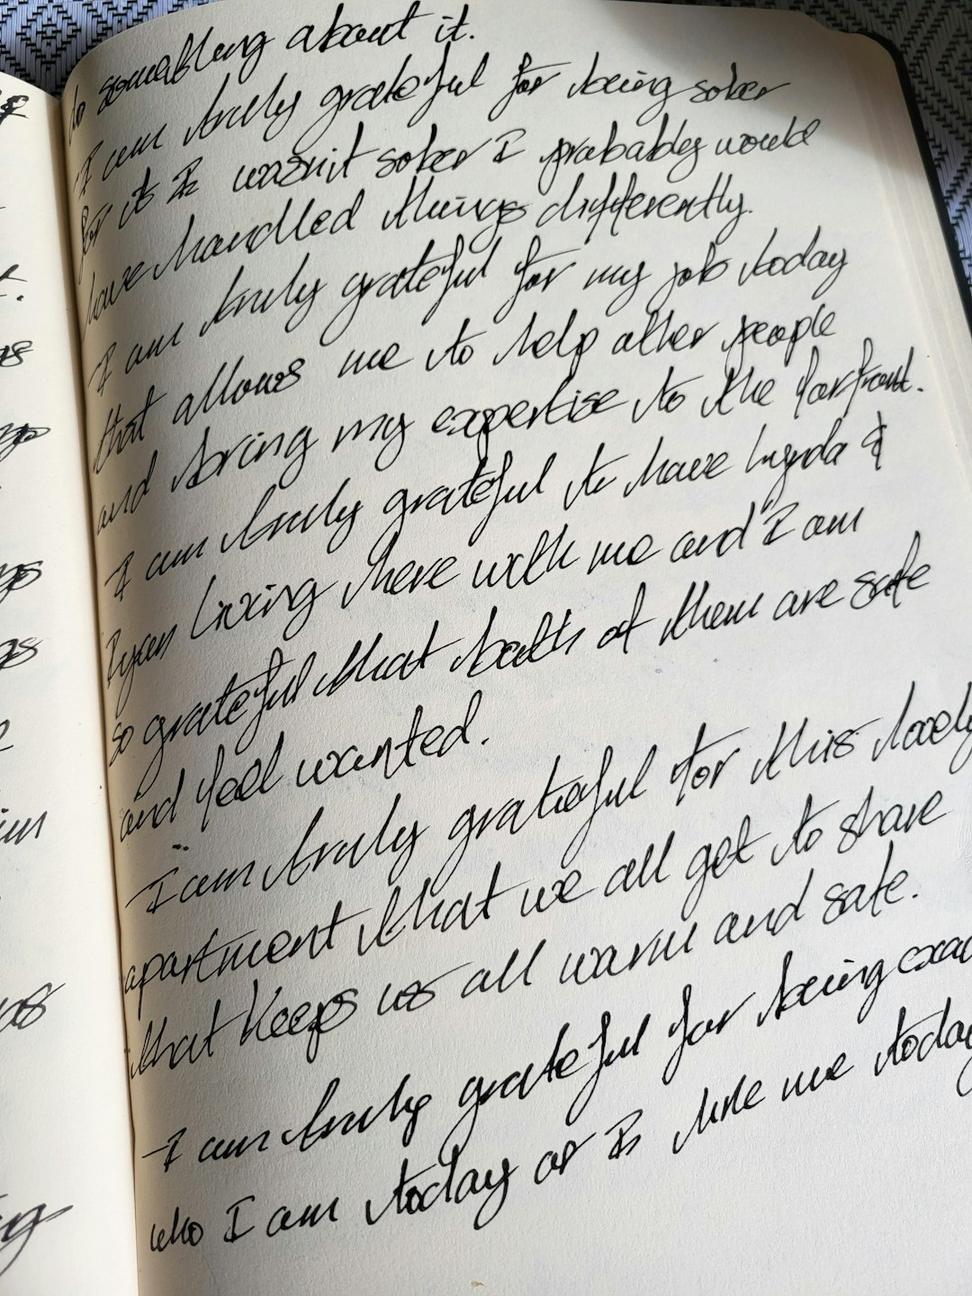 to something about it.
I am truly grateful for being sober
for if I wasn't sober I probably would
have handled things differently.
I am truly grateful for my job today
that allows me to help other people
and bring my expertise to the forfront.
I am truly grateful to have &
living here with me and I am
so grateful that both of them are safe
and feel wanted.
I am truly grateful for this lovely
apartment that we all get to share
that keeps us all warm and safe.
I am truly grateful for being
who I am today as I like me today